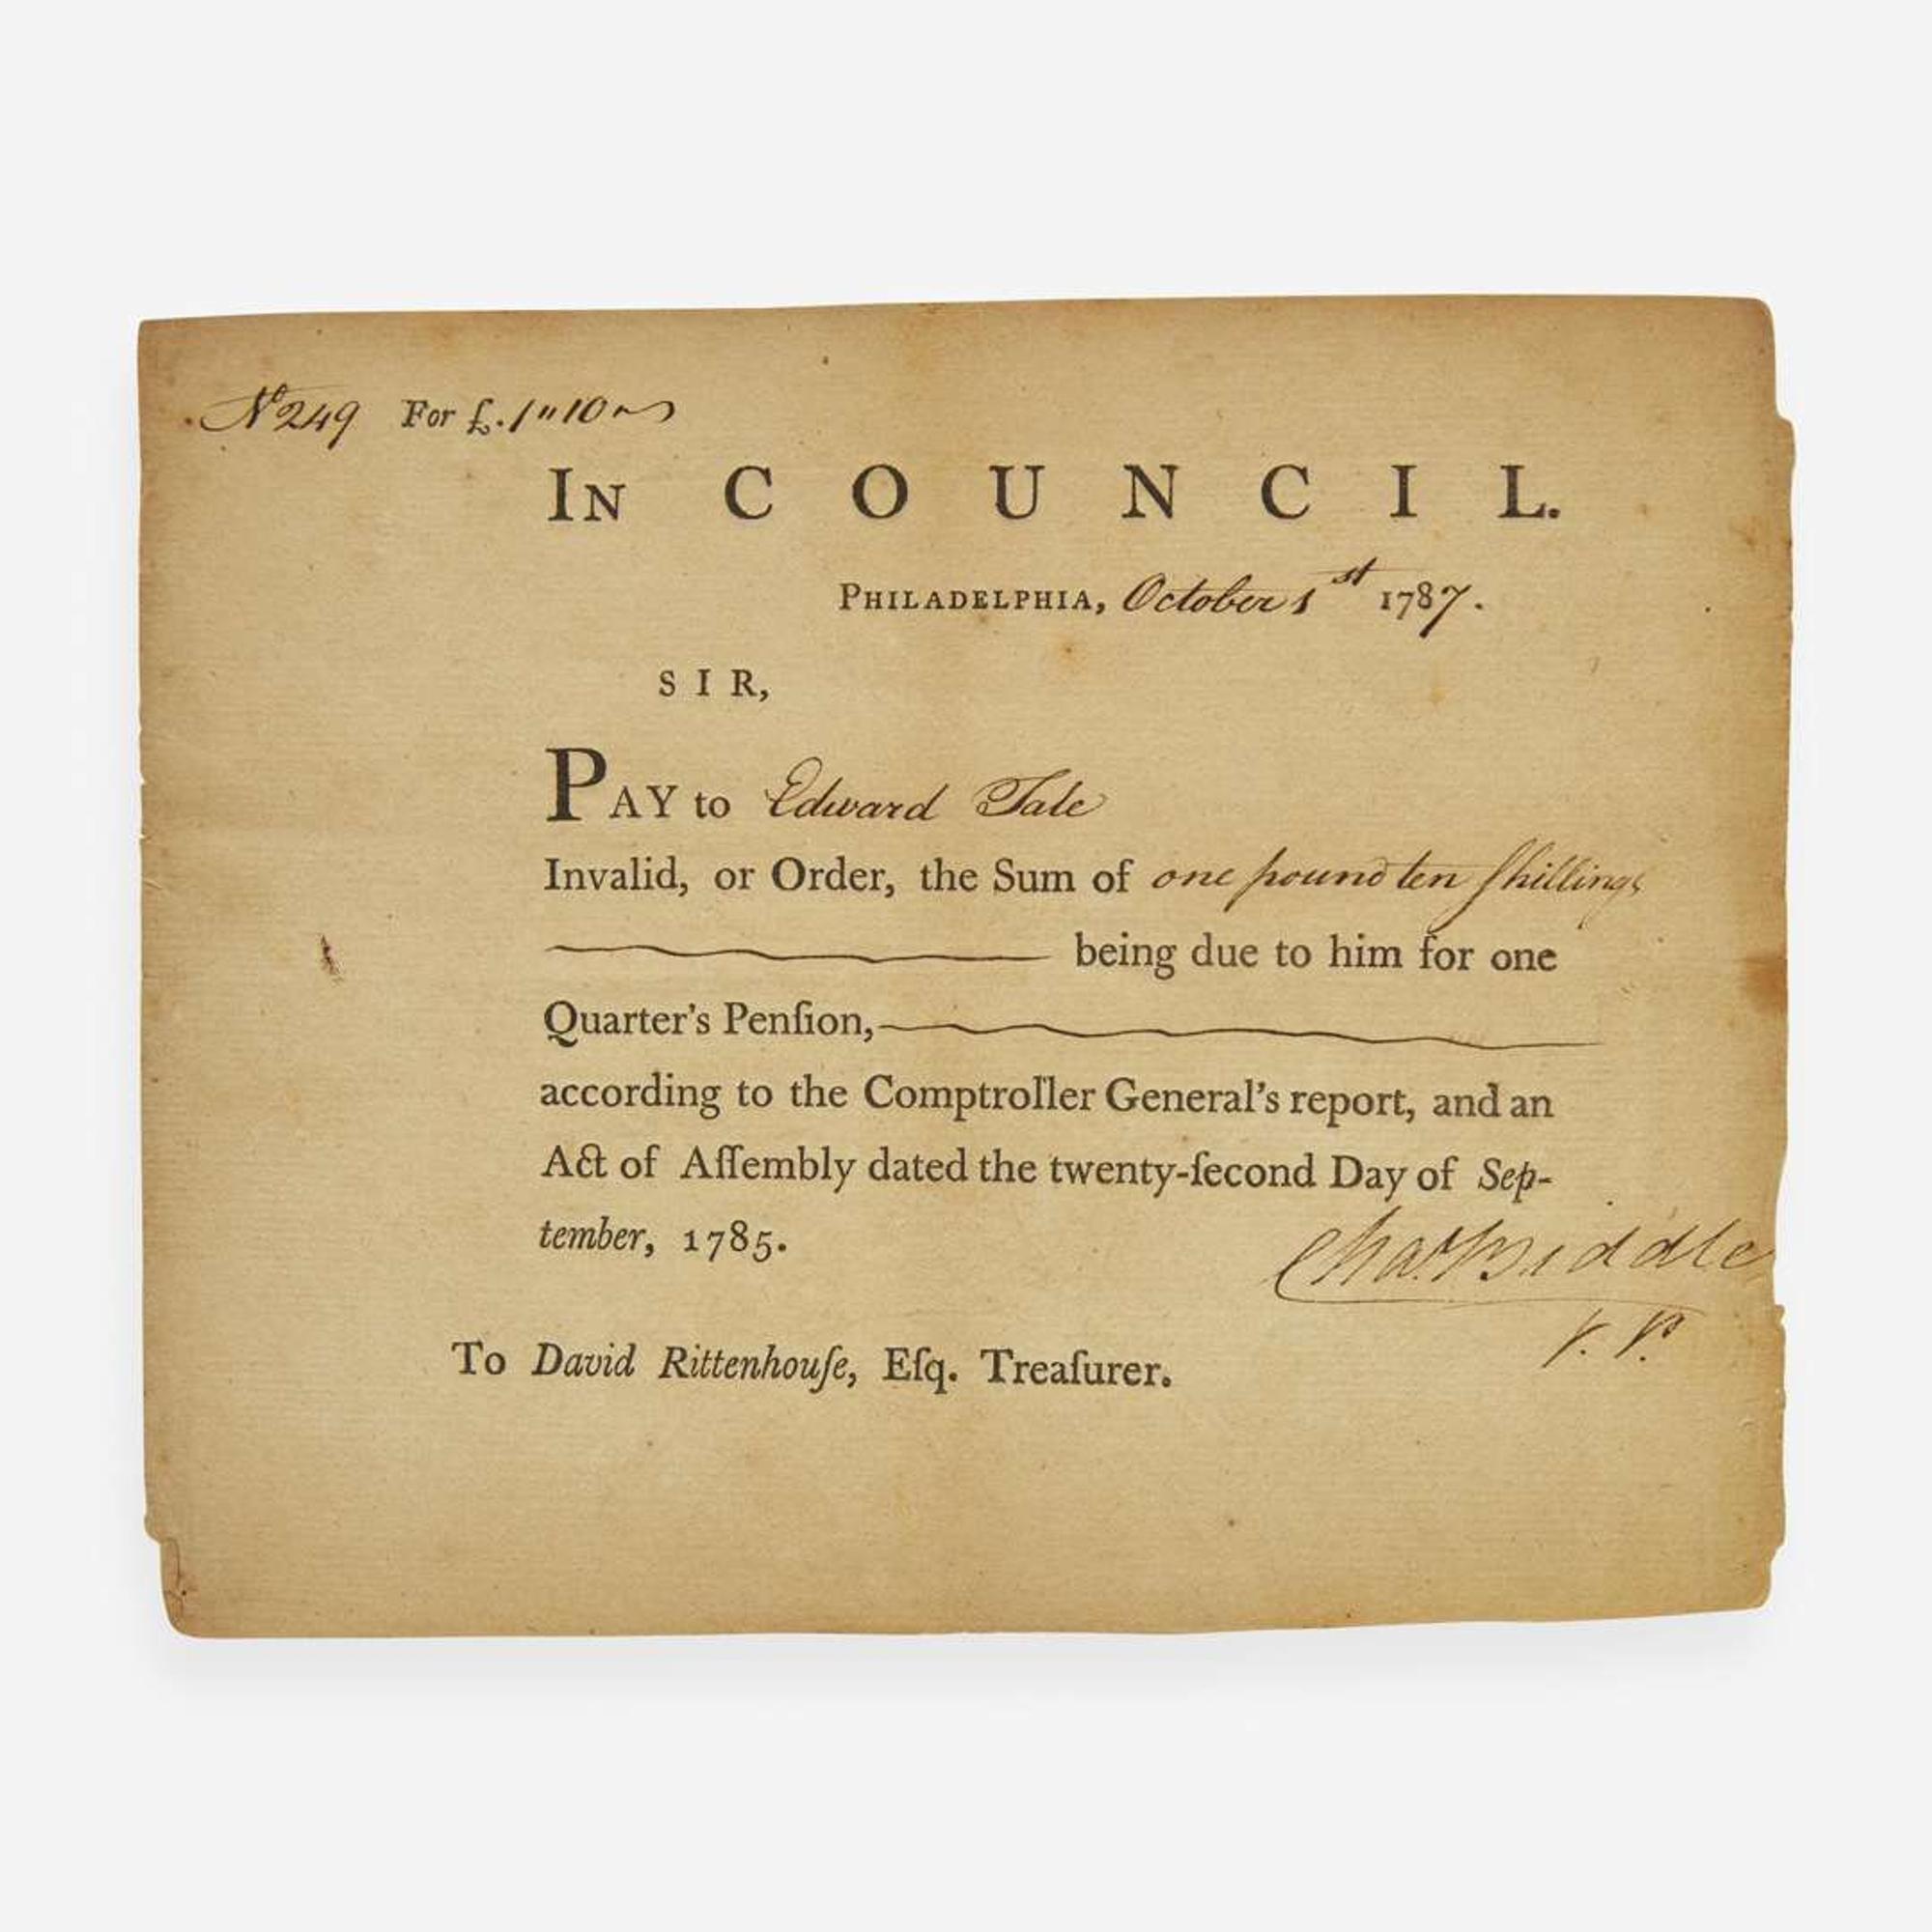 No 249 For £. 1"10"
IN COUNCIL.
PHILADELPHIA, October 1st 1787.
SIR,
PAY to Edward Tale
Invalid, or Order, the Sum of one pound ten ſhillings
being due to him for one
Quarter's Penſion,
according to the Comptroller General's report, and an
Act of Aſſembly dated the twenty-ſecond Day of Sep-
tember, 1785.
Chas Biddle
V. P.
To David Rittenhouſe, Eſq. Treaſurer.